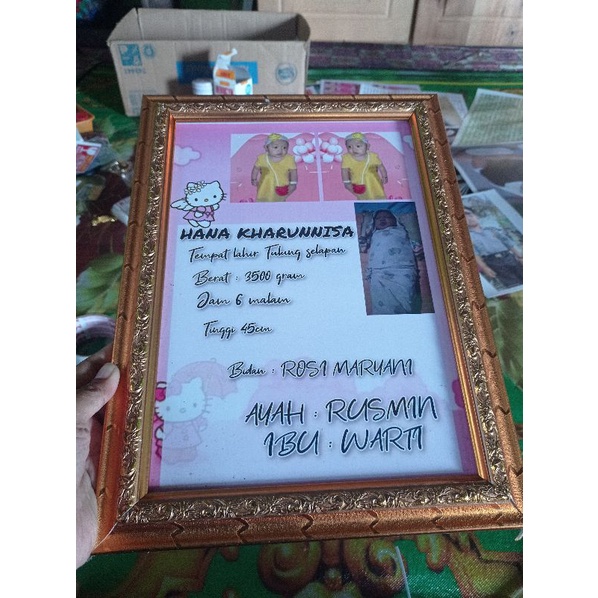 HANA KHARUNNISA
Tempat lahir Tulung selapan
Berat : 3500 gram
Jam 6 malam
Tinggi 45cm
Bidan : ROSI MARYANI
AYAH : RUSMIN
IBU : WARTI